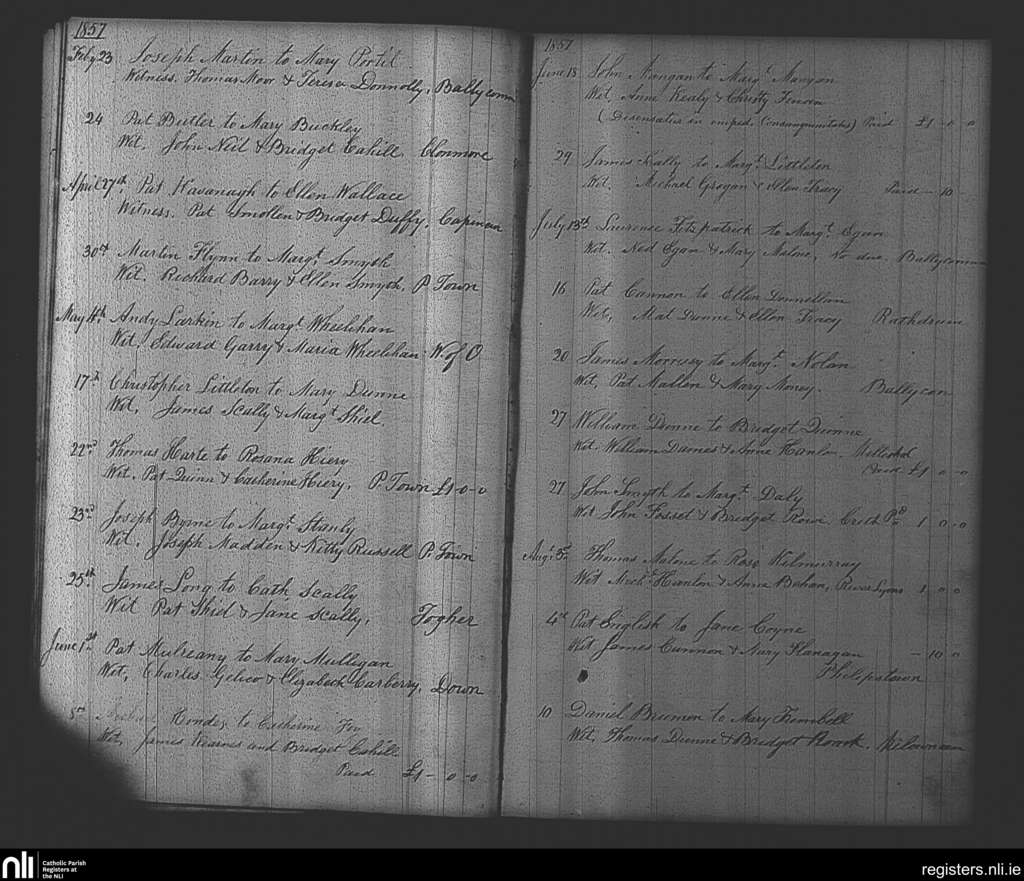 1857
Feby 23 Joseph Martin to Mary
Witness. Thomas Moor & Teresa Donnolly, Ballycomm
24 Pat Butler to Mary Buckley
Wit. John Neil & Bridget Cahill. Clonmore
April 27th, Pat Kavanagh to Ellen Wallace
Witness. Pat Smollen & Bridget Duffy,
30th Martin Flynn to Margt Smyth
Wit. Richard Barry & Ellen Smyth, P. Town
May Andy Larkin to Margt Wheelehan
Wit. Edward Garry & Maria Wheelehan. W. of O
17th Christopher Littleton to Mary Dunne
Wit. James Scally & Margt Shiel.
22nd Thomas Harte to Rosana Hiery
Wit. Pat Quinn & Catherine Hiery, P. Town £1-0-0
23rd Joseph Byrne to Margt Stanly
Wit. Joseph Madden & Kitty Russell P. Town
25th James Long to Cath Scally
Wit Pat Shiel & Jane Scally, Togher
June 1st Pat Mulreany to Mary Mulligan
Wit, Charles & Elizabeth Carberry, Down
5th to Catherine
Wit, James Kearns and Bridget Cahill
Paid £1-0-0
1857
June 18 John Mangan to Margt Mangan
Wit. Anne Kealy & Christy
(Dispensatis in imped. Consanguinitatis) Paid £1-0-0
29 James Scally to Margt Littleton
Wit. Michael Grogan & Ellen Tracy Paid - 10 -
July 13th Laurence Fitzpatrick to Margt. Egan
Wit. Ned Egan & Mary Malone, No due. Ballycommon
16 Pat Cannon to Ellen Donnellan
Wit, Mat Dunne & Ellen Tracy Rathdrum
20 James Morrissy to Margt. Nolan
Wit, Pat Mallen & Mary Money. Ballycon
27 William Dunne to Bridget Quinne
Wit. William Dames & Anne Hanlon.
Paid £1 0-0
27 John Smyth to Margt. Daly
Wit John Fosset & Bridget 1 0-0
Augt Thomas Malone to Rose Kilmurray
Wit Michl Hanlon & Anne Behan, River Lyons 1 0 0
4th Pat English to Jane Coyne
Wit James Cannon & Mary Flanagan - 10 0
Philipstown
10 Daniel to Mary
Wit. Thomas Dunne & Bridget
nli
Catholic Parish
Registers at
the NLI
registers.nli.ie